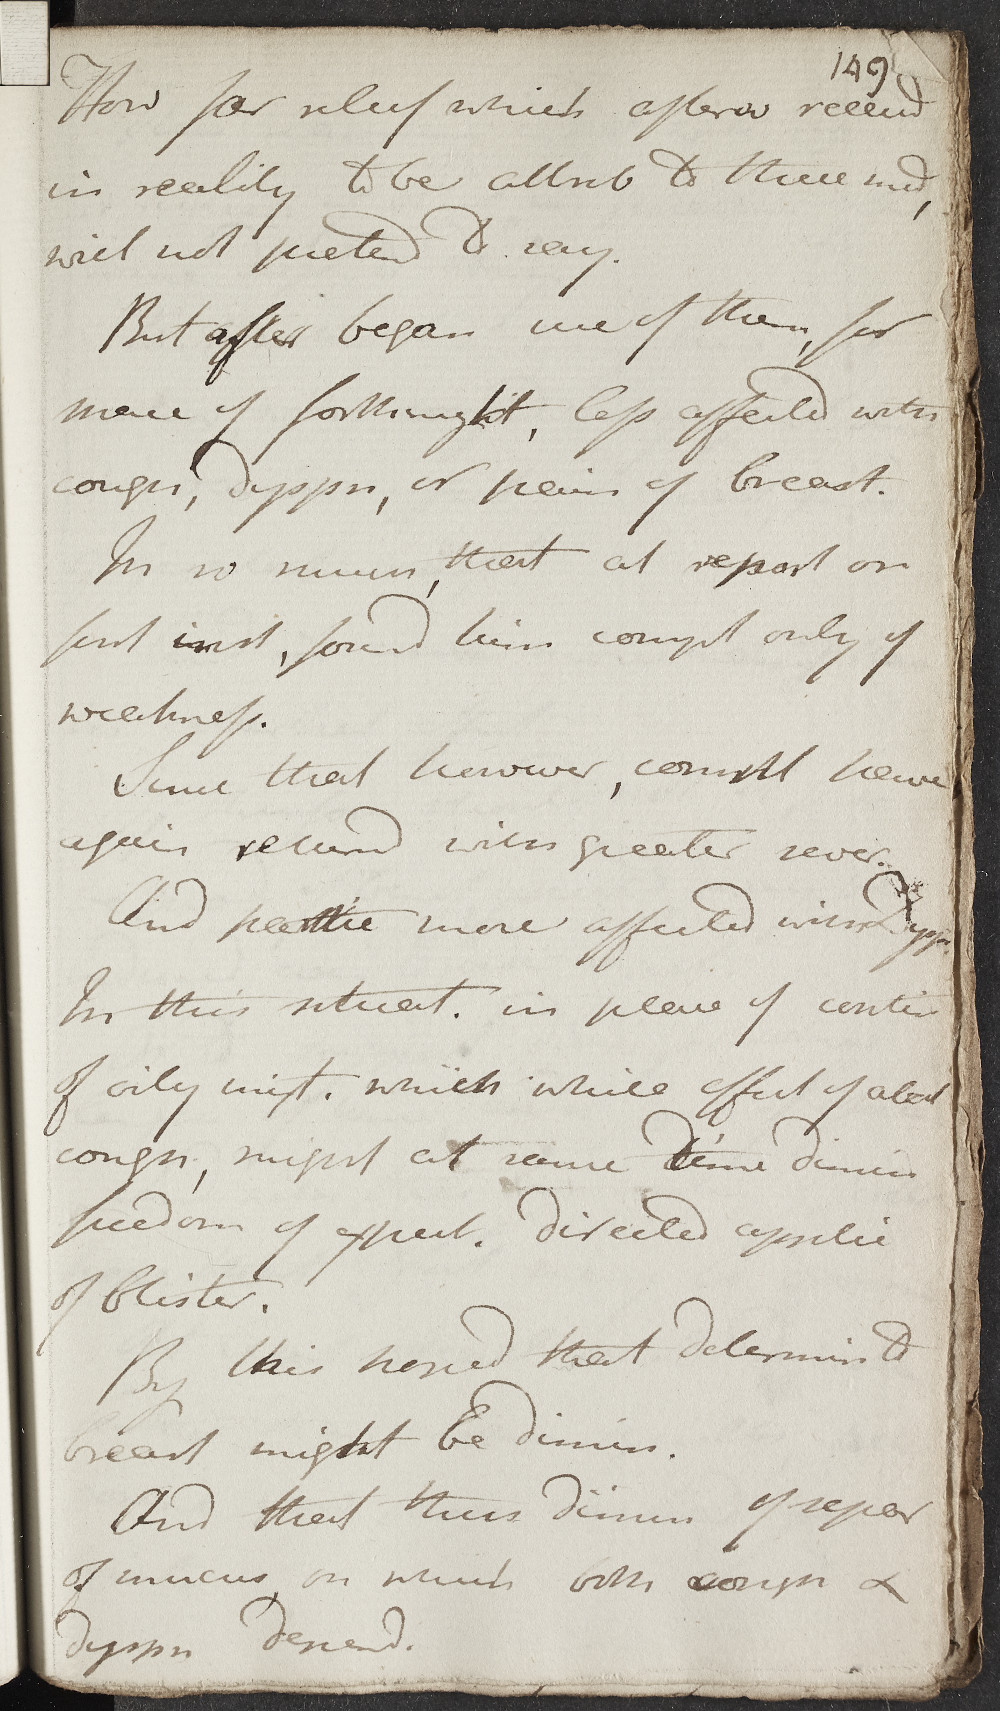 149
How far relief which afterw receivd
in reality to be attrib to these med,
will not pretend to say.
But after began use of them, for
space of forthnight, less affected with
cough, dyspn, or pain of breast.
In so much, that at report on
first inst, found him compl only of
weakness.
Since that however, compll have
again returnd with greater sever.
And partic more affected with Dyspn.
In this situat. in place of contin
of oily mixt. which while effect of abat
cough, might at same time dimin
freedom of expect. directed applic
of blister.
By this hoped that determin to
breast might be dimin.
And that thus dimin of separ
of mucus, on which both cough &
dyspn depend.